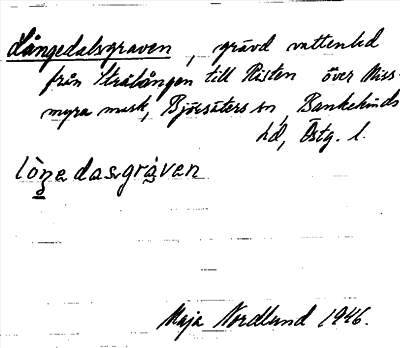 Långedalsgraven, grävd vattenled
från Strålången till Risten över Miss-
myra mark, Björsäters sn, Bankekinds
hd, Östg. l.
lòŋedasgråven
Maja Nordlund 1946.